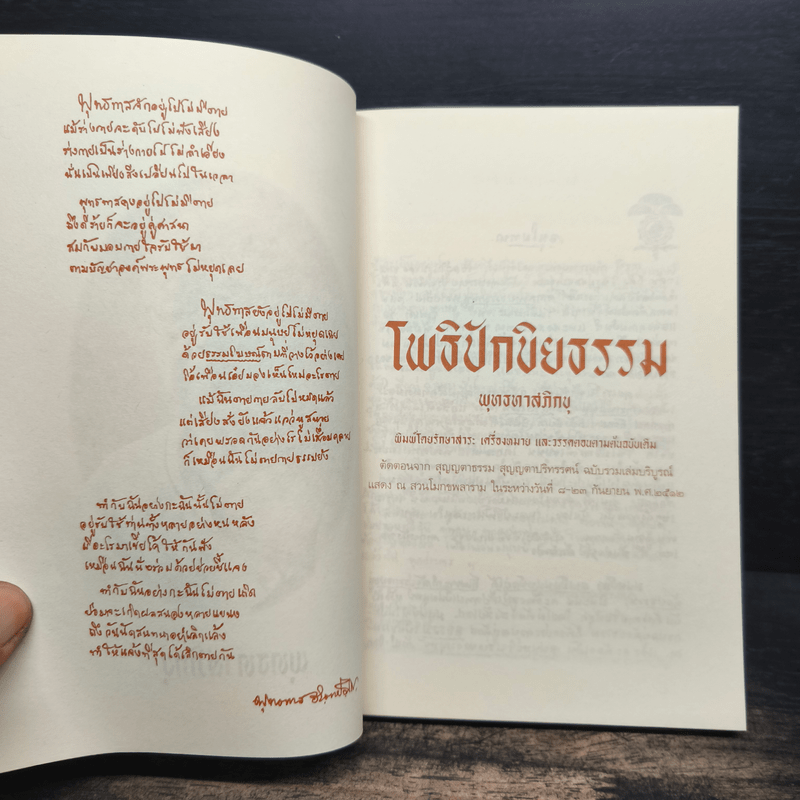 พุทธทาสจักอยู่ไปไม่มีตาย
แม้ร่างกายจะดับไปไม่ฟังเสียง
ร่างกายเป็นร่างกายไปไม่ลำเอียง
นั่นเป็นเพียงสิ่งเปลี่ยนไปในเวลา
พุทธทาสคงอยู่ไปไม่มีตาย
ถึงดีร้ายก็จะอยู่คู่ศาสนา
สมกับมอบกายใจรับใช้มา
ตามบัญชาองค์พระพุทธไม่หยุดเลย
พุทธทาสยังอยู่ไปไม่มีตาย
อยู่รับใช้เพื่อนมนุษย์ไม่หยุดเฉย
ด้วยธรรมโฆษณ์ตามที่วางไว้อย่างเคย
โอ้เพื่อนเอ๋ยมองเห็นไหมอะไรตาย
แม้ฉันตายกายลับไปหมดแล้ว
แต่เสียงสั่งยังแจ้วแว่วหูสหาย
ว่าเคยพลอดกันอย่างไรไม่เสื่อมคลาย
ก็เหมือนฉันไม่ตายกายธรรมยัง
ทำกับฉันอย่างกะฉันนั้นไม่ตาย
อยู่รับใช้ท่านทั้งหลายอย่างหนหลัง
มีอะไรมาเขี่ยไค้ให้กันฟัง
เหมือนฉันนั่งร่วมด้วยช่วยชี้แจง
ทำกับฉันอย่างกะฉันไม่ตายเถิด
ย่อมจะเกิดผลสนองหลายแขนง
ทุกวันนัดสนทนาอย่าเลิกแล้ง
ทำให้แจ้งที่สุดได้เลิกตายกัน
พุทธทาส อินทปัญโญ
โพธิปักขิยธรรม
พุทธทาสภิกขุ
พิมพ์โดยรักษาสาระ เครื่องหมาย และวรรคตอนตามต้นฉบับเดิม
ตัดตอนจาก สุญญตาธรรม สุญญตาปริทรรศน์ ฉบับรวมเล่มบริบูรณ์
แสดง ณ สวนโมกขพลาราม ในระหว่างวันที่ ๘-๒๓ กันยายน พ.ศ.๒๕๑๒